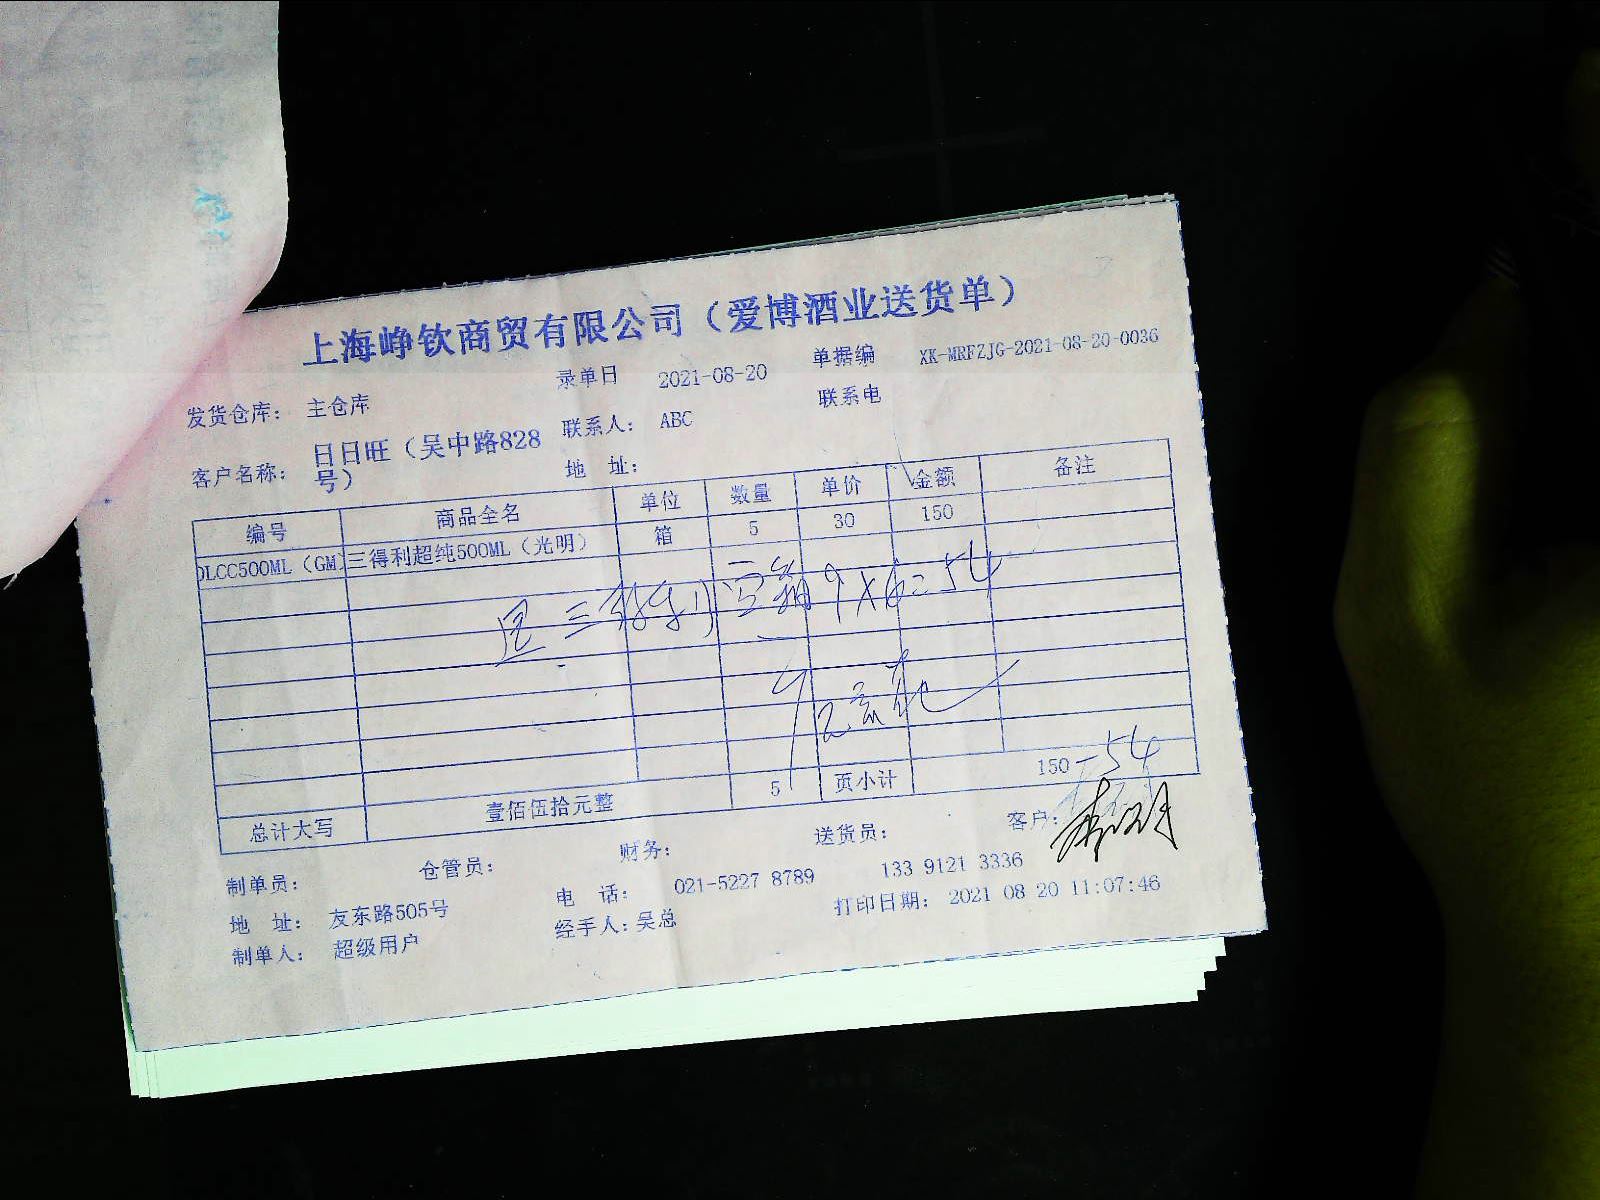 上海峥钦商贸有限公司（爱博酒业送货单）
录单日 2021-08-20 单据编 XK-MRFZJG-2021-08-20-0036
发货仓库： 主仓库 联系人： ABC 联系电
客户名称： 日日旺（吴中路828号） 地 址：
编号 商品全名 单位 数量 单价 金额 备注
OLCC500ML（GM 三得利超纯500ML（光明） 箱 5 30 150
三得利空箱9×6=54
总计大写 壹佰伍拾元整 5 页小计 150-54
制单员： 仓管员： 财务： 送货员： 客户：
地 址： 友东路505号 电 话： 021-5227 8789 133 9121 3336
制单人： 超级用户 经手人：吴总 打印日期： 2021 08 20 11:07:46